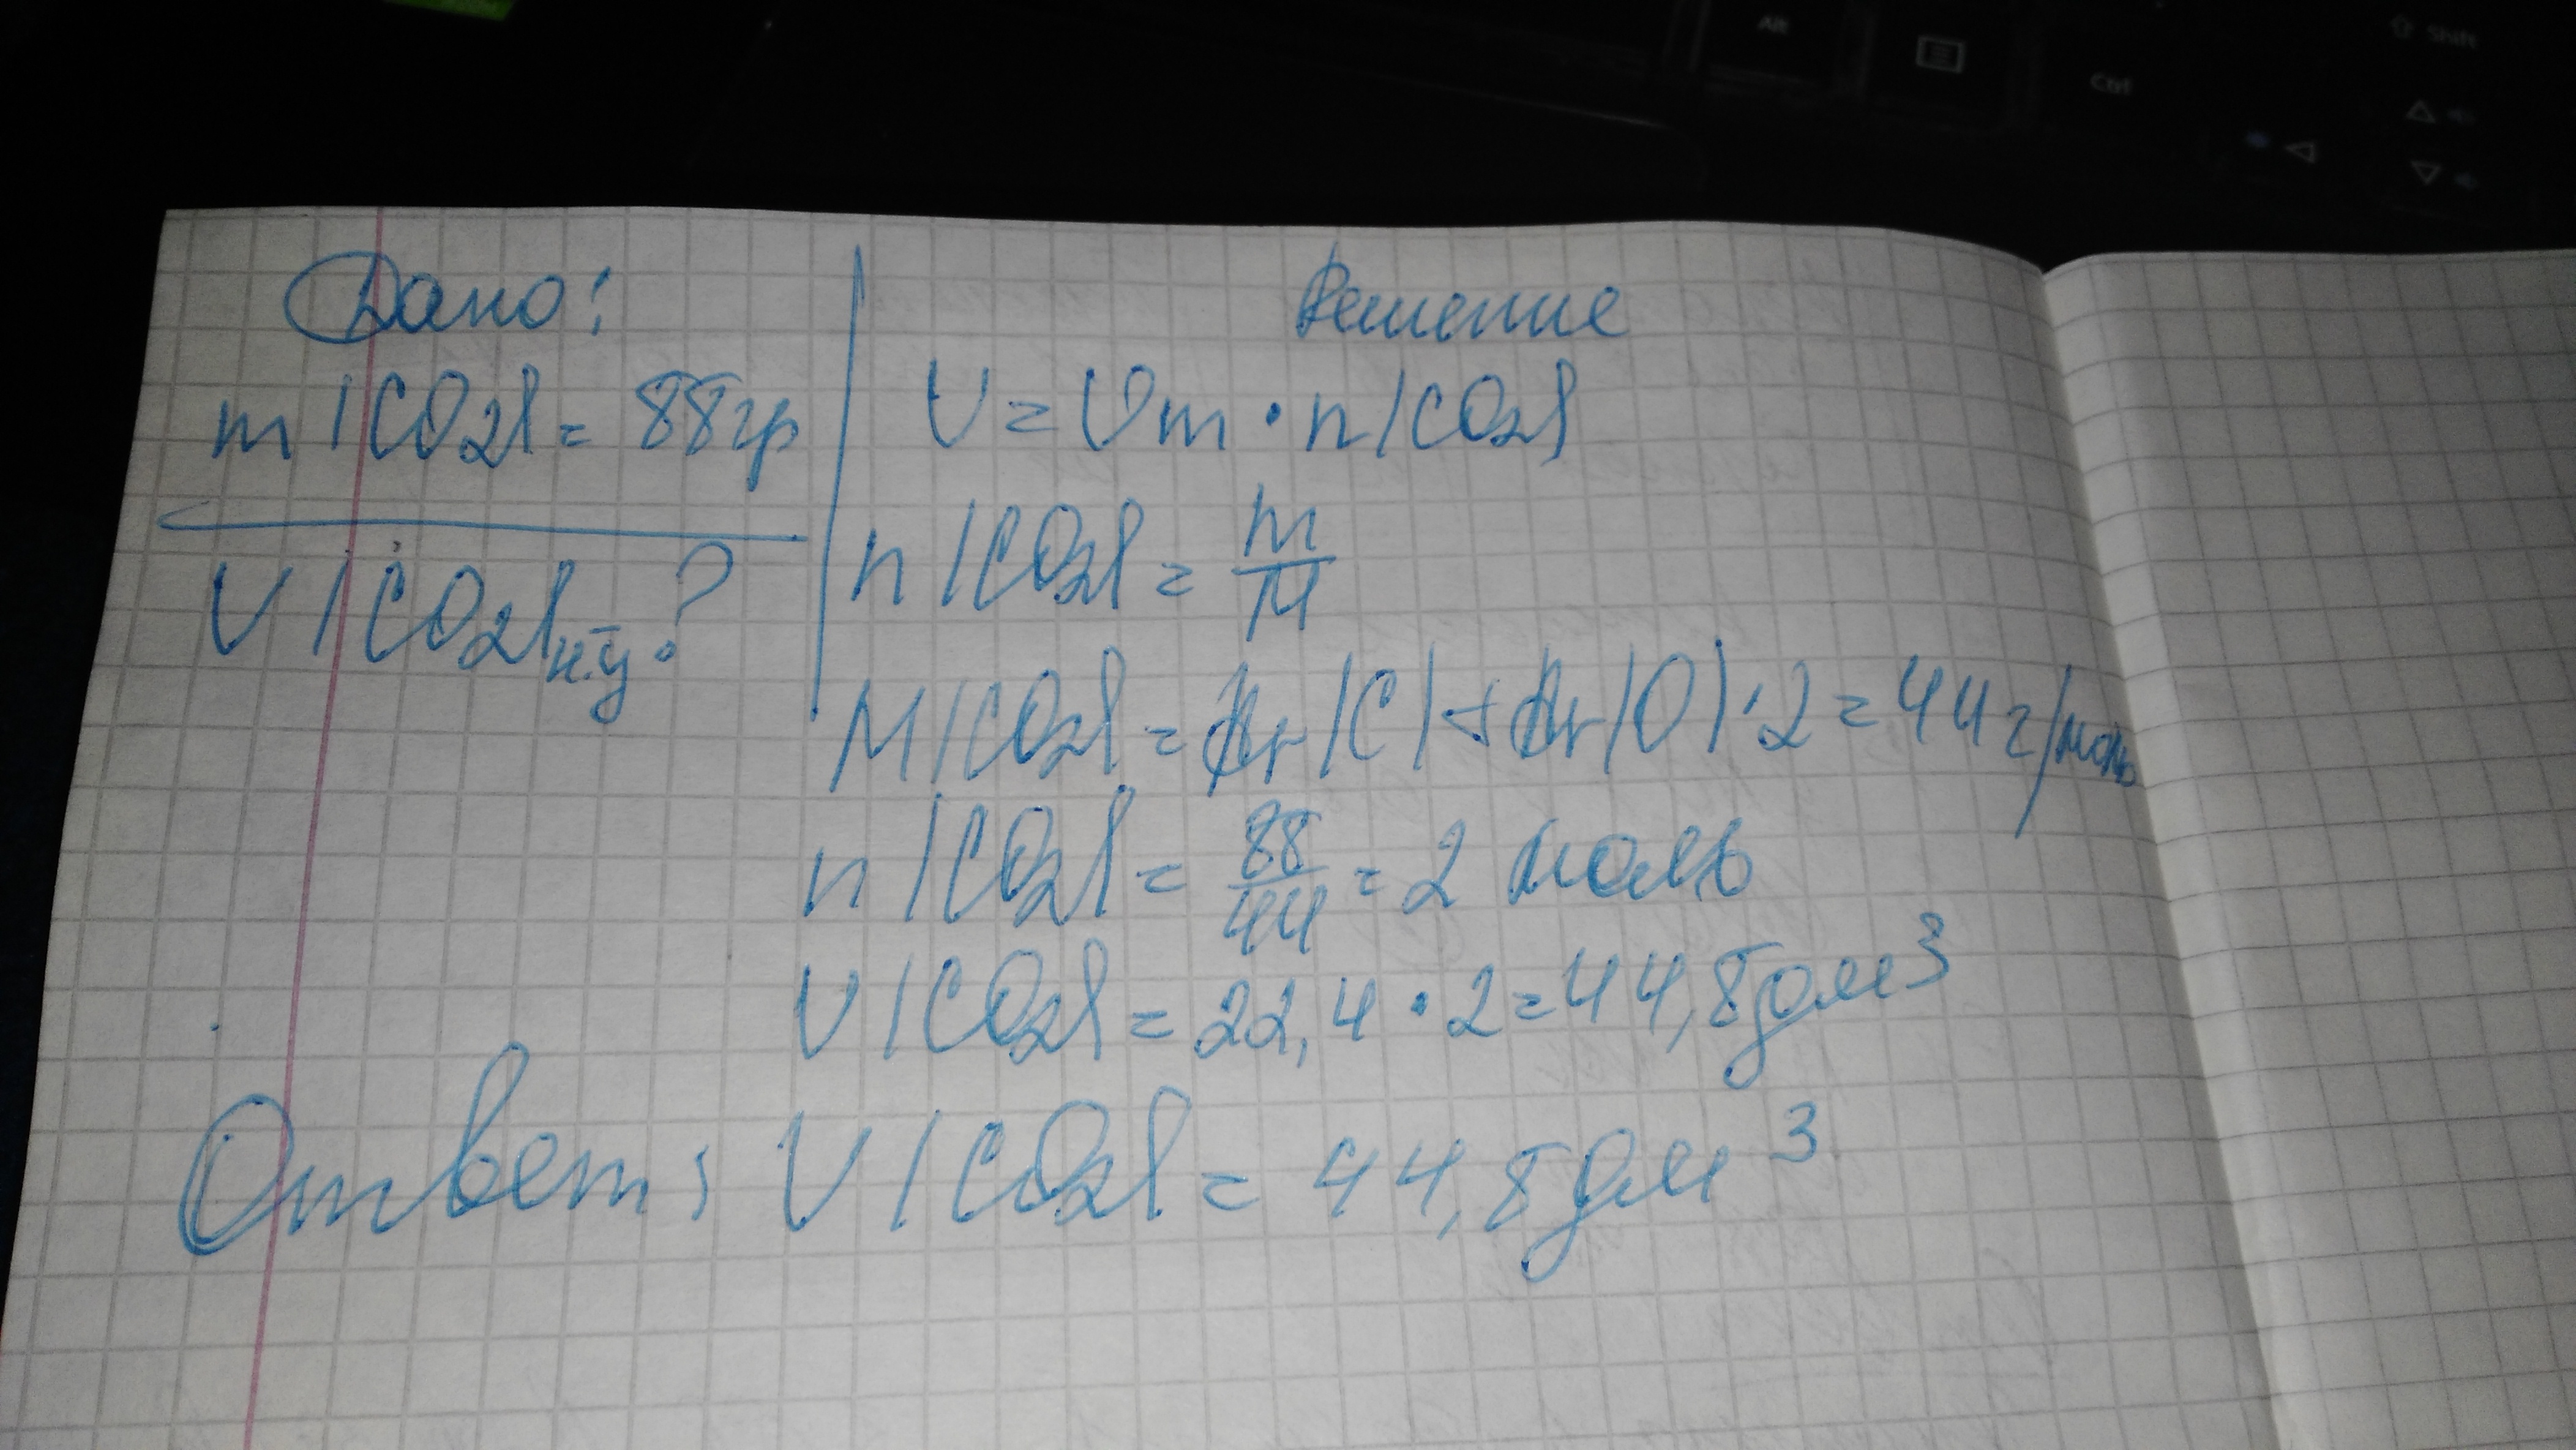 Alt
Shift
Ctrl
Дано:
m(CO2) = 88гр
V(CO2)н.у - ?
Решение
V = Vm · n(CO2)
n(CO2) = m/M
M(CO2) = Ar(C) + Ar(O)·2 = 44 г/моль
n(CO2) = 88/44 = 2 моль
V(CO2) = 22,4 · 2 = 44,8дм³
Ответ: V(CO2) = 44,8дм³